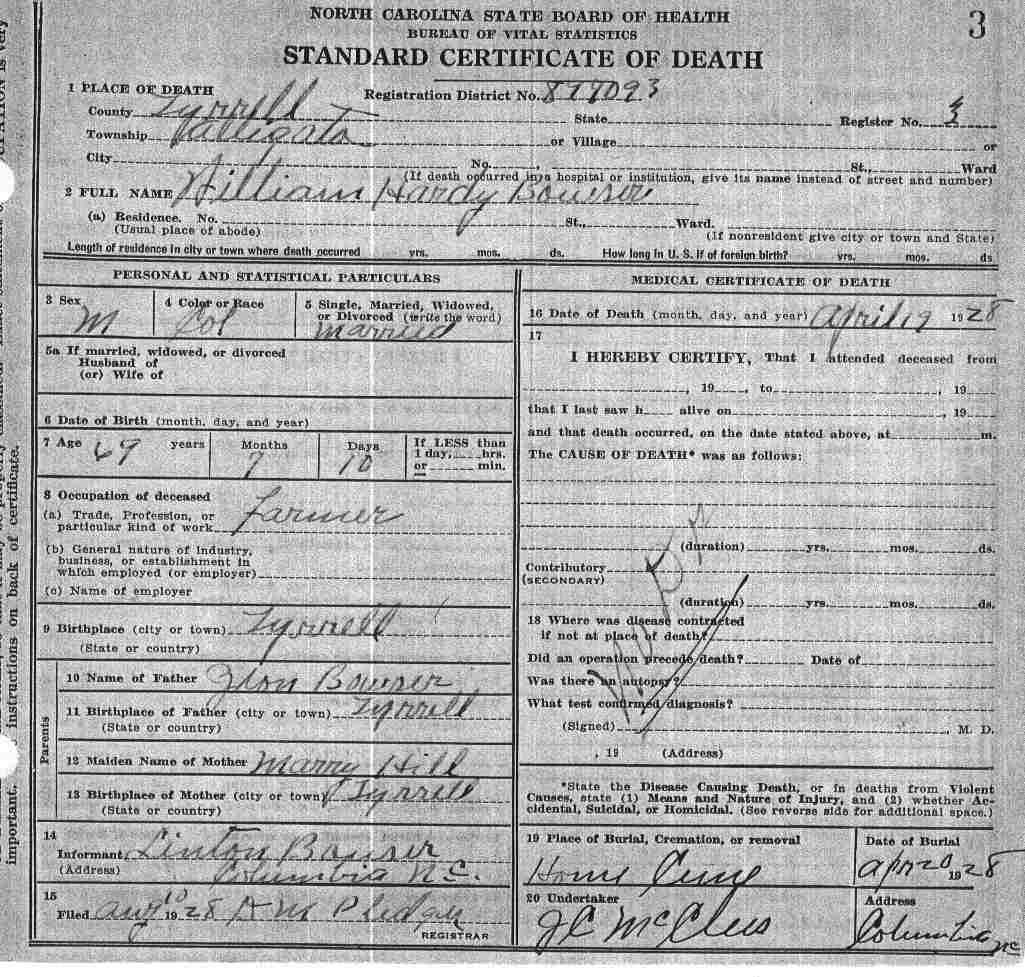 NORTH CAROLINA STATE BOARD OF HEALTH
BUREAU OF VITAL STATISTICS
STANDARD CERTIFICATE OF DEATH
3
1 PLACE OF DEATH
Registration District No. 877093
County Tyrrell State Register No. 3
Township Alligator or Village or
City No. St., Ward
(If death occurred in a hospital or institution, give its name instead of street and number)
2 FULL NAME William Hardy Bowser
(a) Residence. No. St., Ward.
(Usual place of abode) (If nonresident give city or town and State)
Length of residence in city or town where death occurred yrs. mos. ds. How long in U. S. if of foreign birth? yrs. mos. ds.
PERSONAL AND STATISTICAL PARTICULARS
3 Sex
M
4 Color or Race
Col
5 Single, Married, Widowed,
or Divorced (write the word)
married
5a If married, widowed, or divorced
Husband of
(or) Wife of
6 Date of Birth (month, day, and year)
7 Age 69 years
Months
7
Days
10
If LESS than
1 day, hrs.
or min.
8 Occupation of deceased
(a) Trade, Profession, or
particular kind of work Farmer
(b) General nature of industry,
business, or establishment in
which employed (or employer)
(c) Name of employer
9 Birthplace (city or town) Tyrrell
(State or country)
Parents
10 Name of Father Zion Bowser
11 Birthplace of Father (city or town) Tyrrell
(State or country)
12 Maiden Name of Mother Marry Hill
13 Birthplace of Mother (city or town) Tyrrell
(State or country)
14
Informant Linton Bowser
(Address) Columbia N.C.
15
Filed Aug 10 1928
REGISTRAR
MEDICAL CERTIFICATE OF DEATH
16 Date of Death (month, day, and year) April 19 1928
17
I HEREBY CERTIFY, That I attended deceased from
, 19 , to , 19
that I last saw h alive on , 19
and that death occurred, on the date stated above, at m.
The CAUSE OF DEATH* was as follows:
(duration) yrs. mos. ds.
Contributory
(SECONDARY)
(duration) yrs. mos. ds.
18 Where was disease contracted
if not at place of death?
Did an operation precede death? Date of
Was there an autopsy?
What test confirmed diagnosis?
(Signed) , M. D.
, 19 (Address)
*State the Disease Causing Death, or in deaths from Violent
Causes, state (1) Means and Nature of Injury, and (2) whether Ac-
cidental, Suicidal, or Homicidal. (See reverse side for additional space.)
19 Place of Burial, Cremation, or removal
Home
Date of Burial
Apr 20 1928
20 Undertaker
J C McClees
Address
Columbia
NC
important. Instructions on back of certificate.